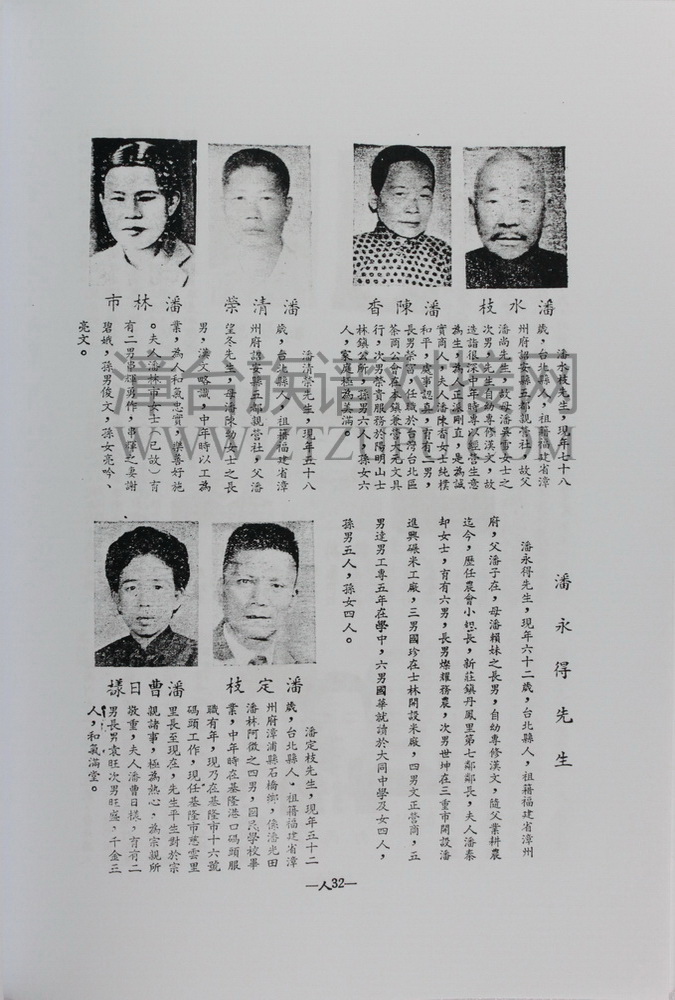 潘水枝
潘陳香
潘水枝先生，現年七十八
歲，台北縣人，祖籍福建省漳
州府詔安縣五都親營社，故父
潘尚先生，故母潘葉雪女士之
次男，先生自幼專修漢文，故
造詣很深中年時專以經營生意
為生，為人正濂剛直，是為誠
實商人，夫人潘陳香女士純樸
和平，處事認真，育有二男，
長男榮富，任職於台灣台北區
茶商公會在本鎮兼營大光文具
行，次男榮貴服務於陽明山士
林鎮公所，孫男六人，孫女六
人，家庭極為美滿。
潘清榮
潘林市
潘清榮先生，現年五十八
歲，台北縣人，祖籍福建省漳
州府詔安縣五都親營社，父潘
望冬先生，母潘陳幼女士之長
男，漢文略識，中年時以工為
業，為人和氣忠實，樂善好施
。夫人潘林市女士（已故）育
有二男串輝勇作，串輝之妻謝
碧娥，孫男俊文，孫女亮吟、
亮文。
潘永得先生
潘永得先生，現年六十二歲，台北縣人，祖籍福建省漳州
府，父潘子在，母潘賴妹之長男，自幼專修漢文，隨父業耕農
迄今，歷任農會小組長，新莊鎮丹鳳里第七鄰鄰長，夫人潘秦
却女士，育有六男，長男燦耀務農，次男世坤在三重市開設潘
進興碾米工廠，三男國珍在士林開設米廠，四男文正營商，五
男達男工專五年在學中，六男國華就讀於大同中學及女四人，
孫男五人，孫女四人。
潘定枝
潘曹日樣
潘定枝先生，現年五十二
歲，台北縣人。祖籍福建省漳
州府漳浦縣石橋鄉，係潘光田
潘林阿微之四男，國民學校畢
業，中年時在基隆港口碼頭服
職有年，現乃在基隆市十六號
碼頭工作，現任基隆市慈雲里
里長至現在，先生平生對於宗
親諸事，極為熱心，為宗親所
敬重，夫人潘曹日樣，育有二
男長男袁旺次男旺盛，千金三
人，和氣滿堂。
—人32—